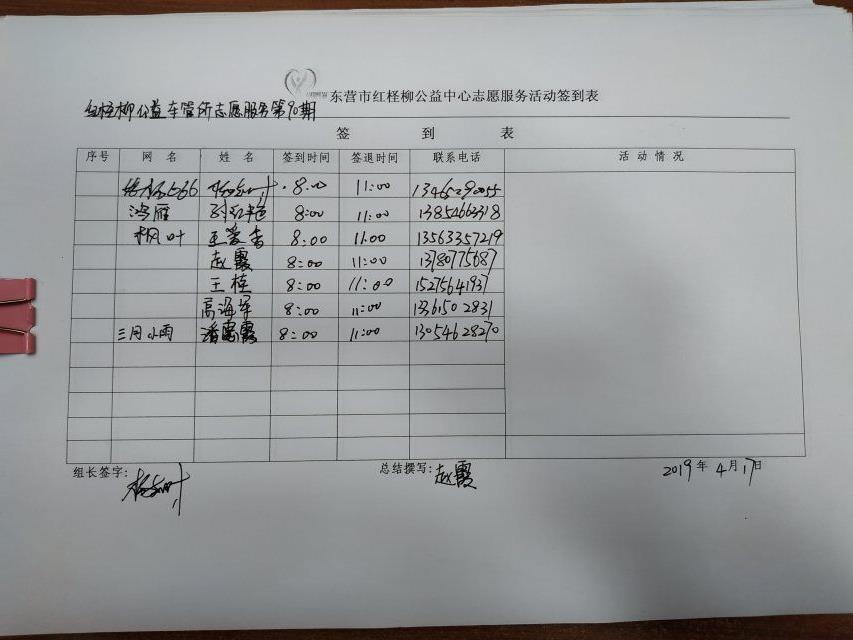 东营市红柽柳公益中心志愿服务活动签到表
红柽柳公益车管所志愿服务第90期
签 到 表
序号 网 名 姓 名 签到时间 签退时间 联系电话 活 动 情 况
8:00 11:00
鸿雁 8:00 11:00 13854663318
枫叶 王爱香 8:00 11:00 13563357219
赵霞 8:00 11:00 13780775687
王桂 8:00 11:00 15275641937
高海军 8:00 11:00 13361502831
三月小雨 潘霞 8:00 11:00 13054628270
组长签字: 总结撰写:赵霞 2019年 4月17日